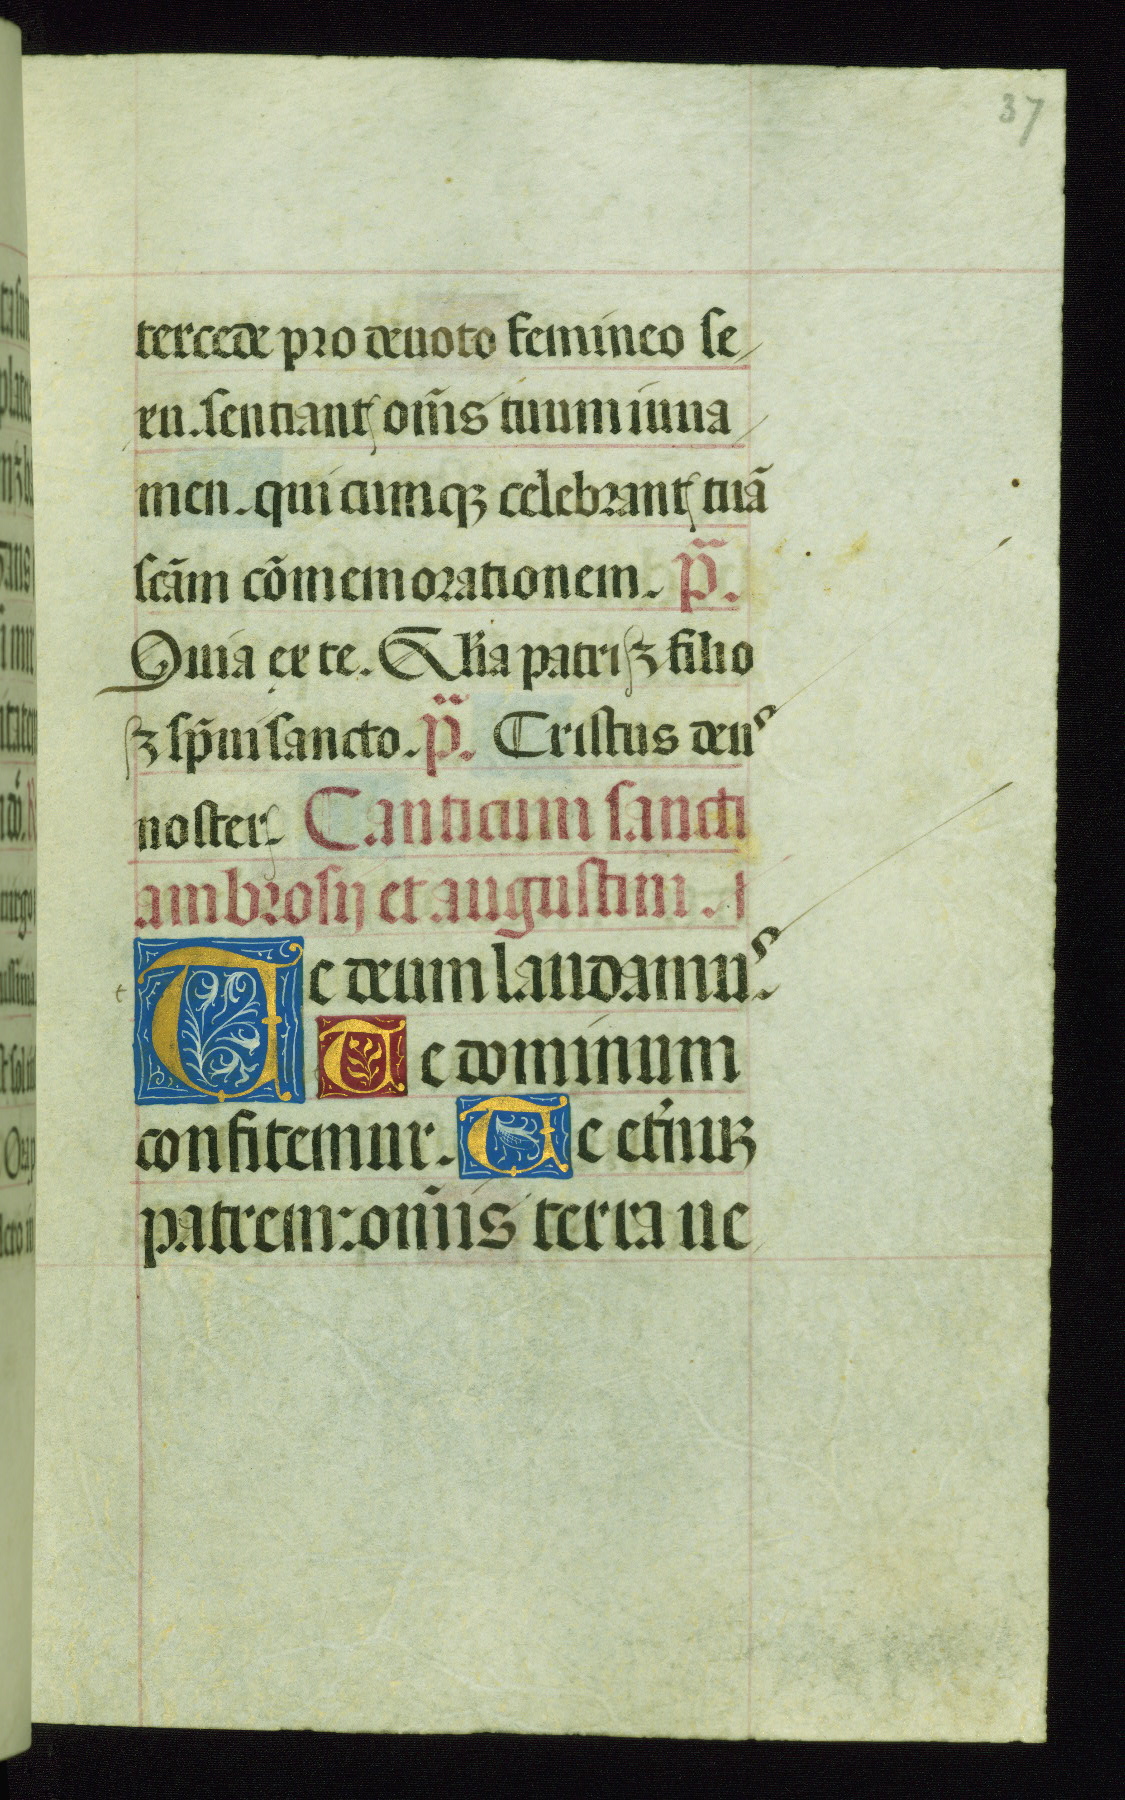 37
tercede pro deuoto femineo se
xu. sentiant om̃s tuum iuua
men. qui cumqꝫ celebrant tuã
scãm cõmemorationem. p̃.
Quia ex te. Gl̃ia patri ꝫ filio
ꝫ sp̃ui sancto. p̃. Cristus deus
noster. Canticum sancti
ambrosij et augustini.
Te deum laudamus.
Te dominum
confitemur. Te et̃nuꝫ
patrem: om̃is terra ue